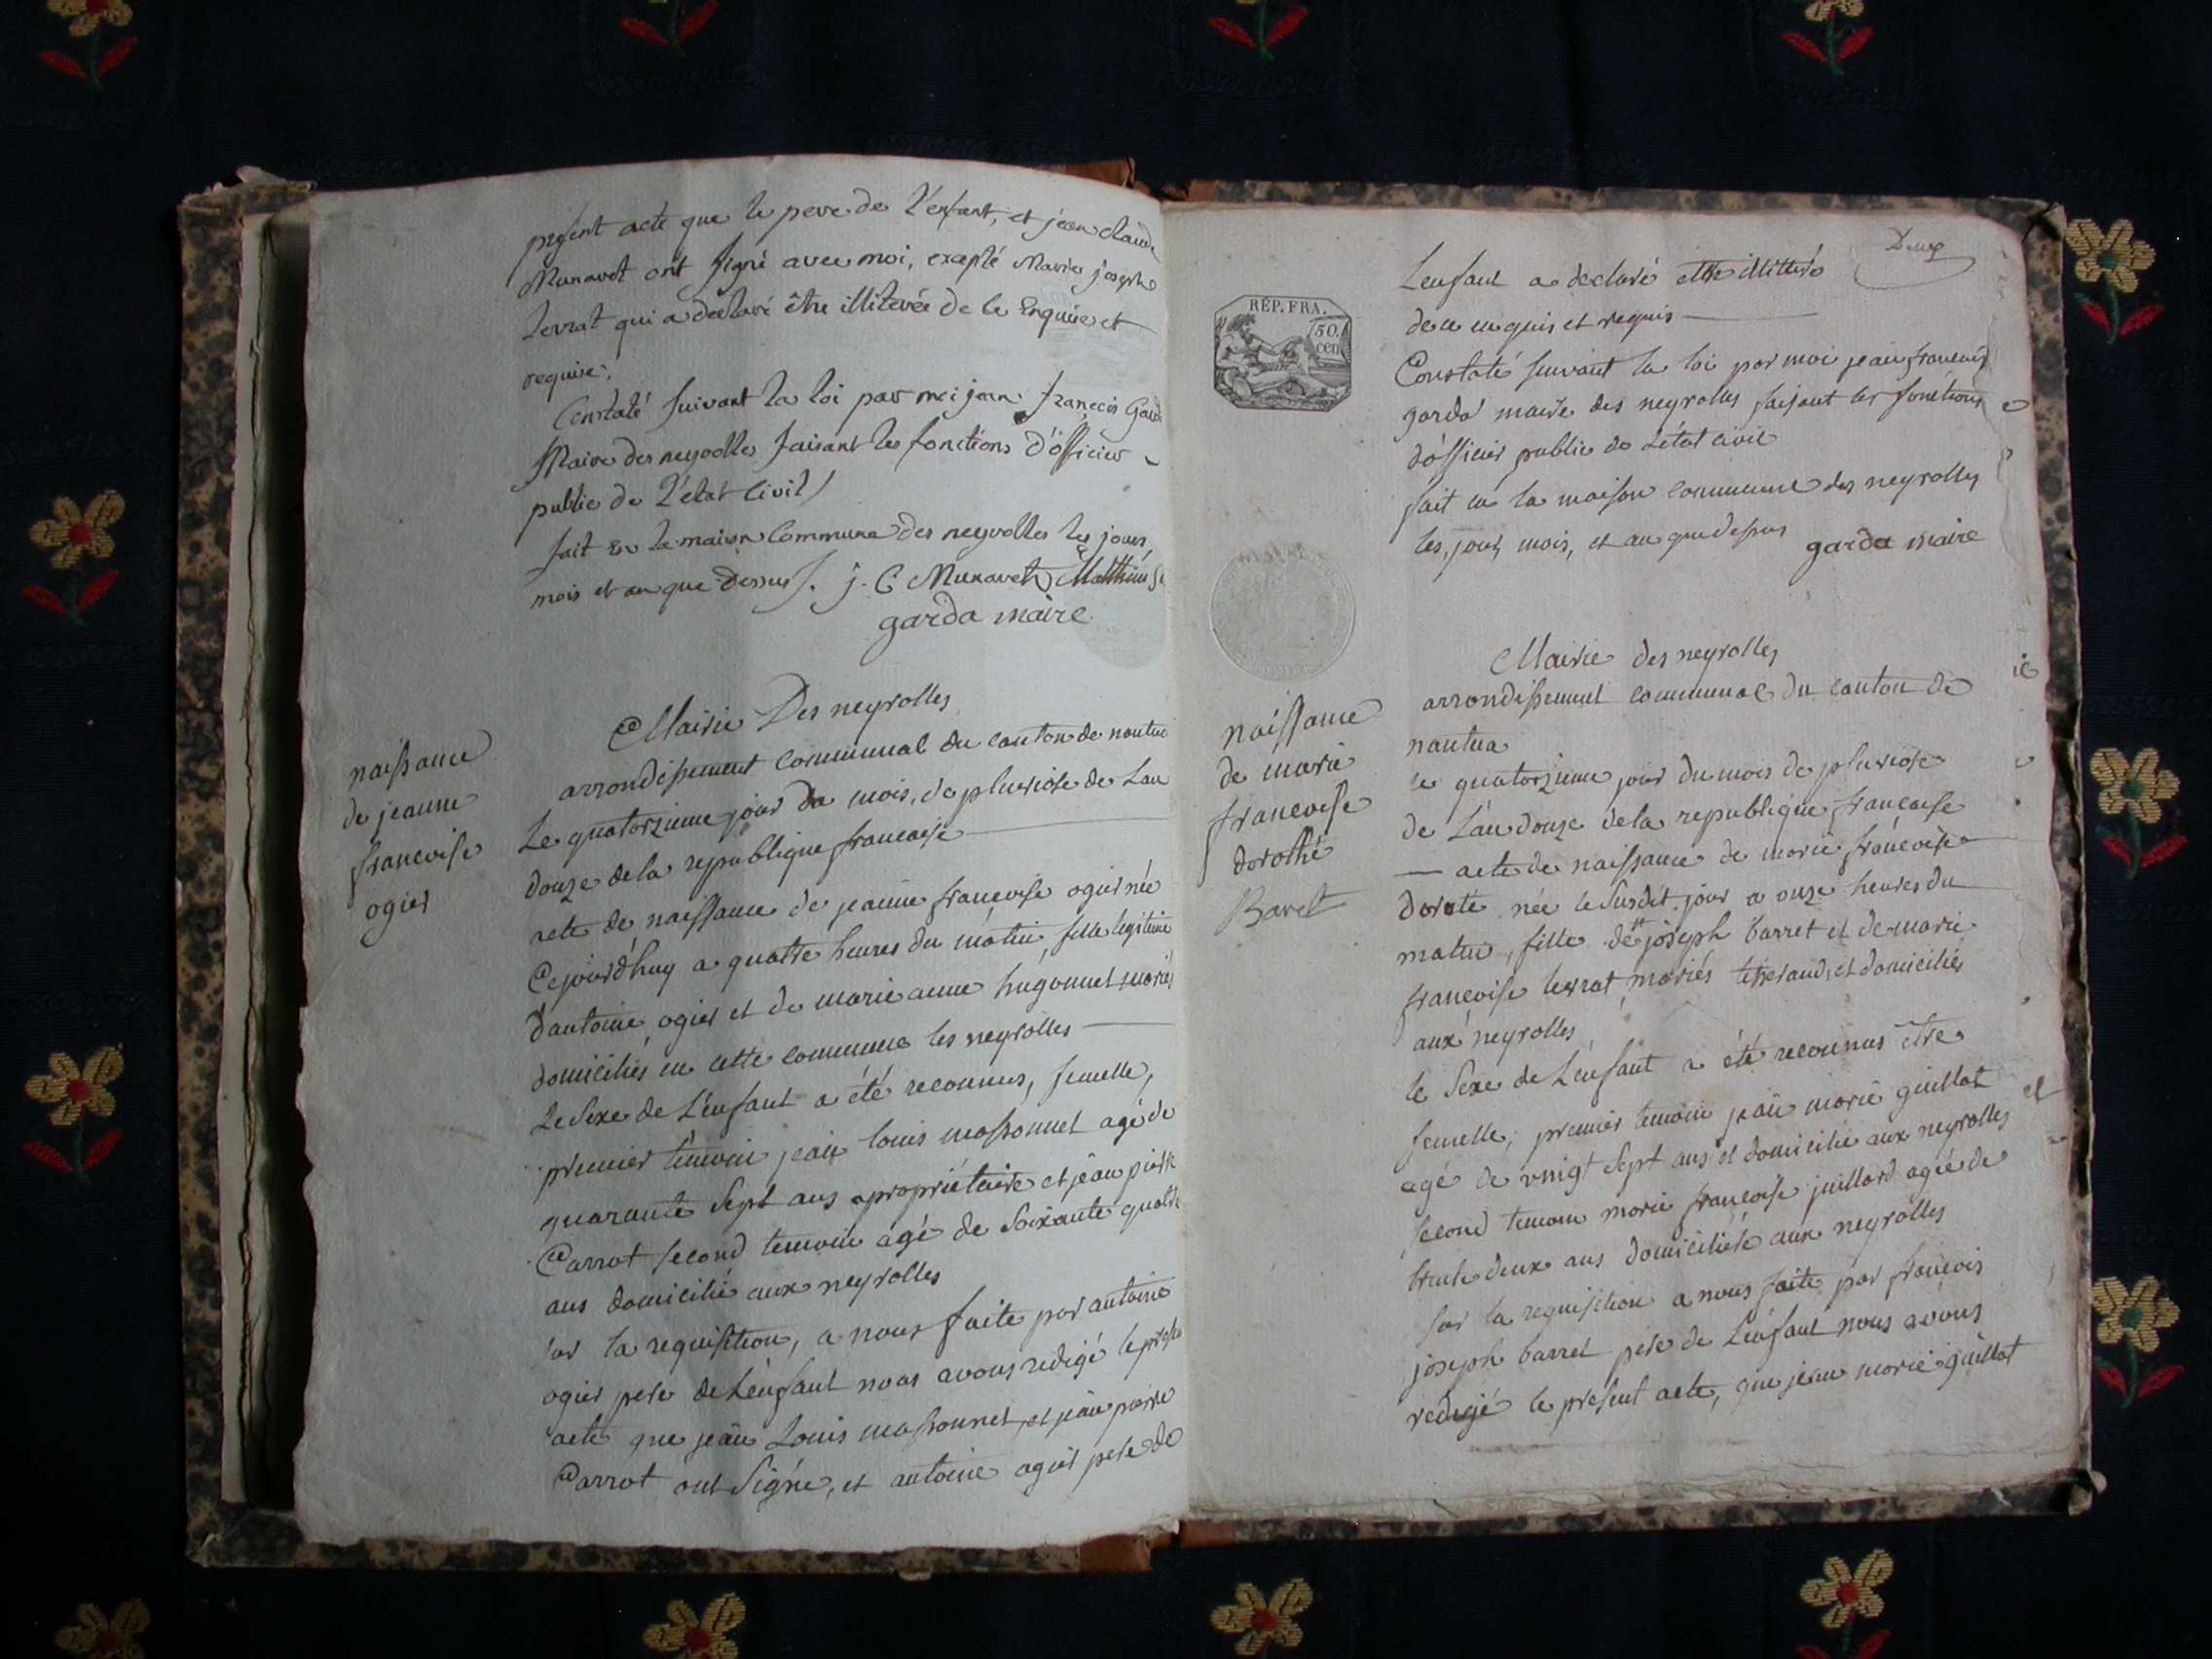 présent acte que le pere de l'enfant, et jean claude
Munavet ont signé avec moi, exepté Marie josephe
levrat qui a déclaré être illiterée de ce Enquise et
requise.
Constaté suivant la loi par moi jean françois Garda
Maire des neyrolles faisant les fonctions d'officier
public de l'état Civil
fait En la maison Commune des neyrolles les jours,
mois et an que dessus. j. C Munavet Matthieu
garda maire
Mairie Des neyrolles
arrondissement communal du canton de nantua
naissance
de jeanne
francoise
ogier
Le quatorzieme jour du mois de pluviose de Lan
douze dela republique francaise
acte de naissance de jeanne francoise ogier née
Cejourdhuy a quatre heures du matin, fille legitime
d'antoine ogier et de marie anne hugonnet mariés
domiciliés en cette commune les neyrolles
Le Sexe de L'enfant a été reconnus, femelle,
premier temoin jean louis massonnet agé de
quarante Sept ans propriétaire et jean pierre
Carrot second temoin agé de Soixante quatre
ans domicilié aux neyrolles
sur la requisition, a nous faite par antoine
ogier pere de L'enfant nous avons redigé le present
acte que jean Louis massonnet, et jean pierre
Carrot ont Signé, et antoine ogier pere de
RÉP. FRA.
50.
cen
L'enfant a declaré ettre illitteré
de ce enquis et requis
Constaté suivant la loi par moi jean francois
garda maire des neyrolles faisant les fonctions
d'officier public de L'etat civil
fait en la maison commune des neyrolles
les, jour, mois, et an que dessus garda maire
Mairie des neyrolles
arrondissement communal du canton de
nantua
naissance
de marie
francoise
dorothé
Baret
le quatorzieme jour du mois de pluviose
de L'an douze dela republique francaise
acte de naissance de marie francoise
doroté née le susdit jour a onze heures du
matin, fille de joseph barret et de marie
francoise levrat mariés tisserands et domiciliés
aux neyrolles
le Sexe de L'enfant a été reconnus etre
femelle, premier temoin jean marie guillot
agé de vingt Sept ans et domicilié aux neyrolles
second temoin marie francoise juillard agée de
trente deux ans domiciliée aux neyrolles
sur la requisition a nous faite par francois
joseph barret pere de L'enfant nous avons
redigé le present acte, que jean marie guillot